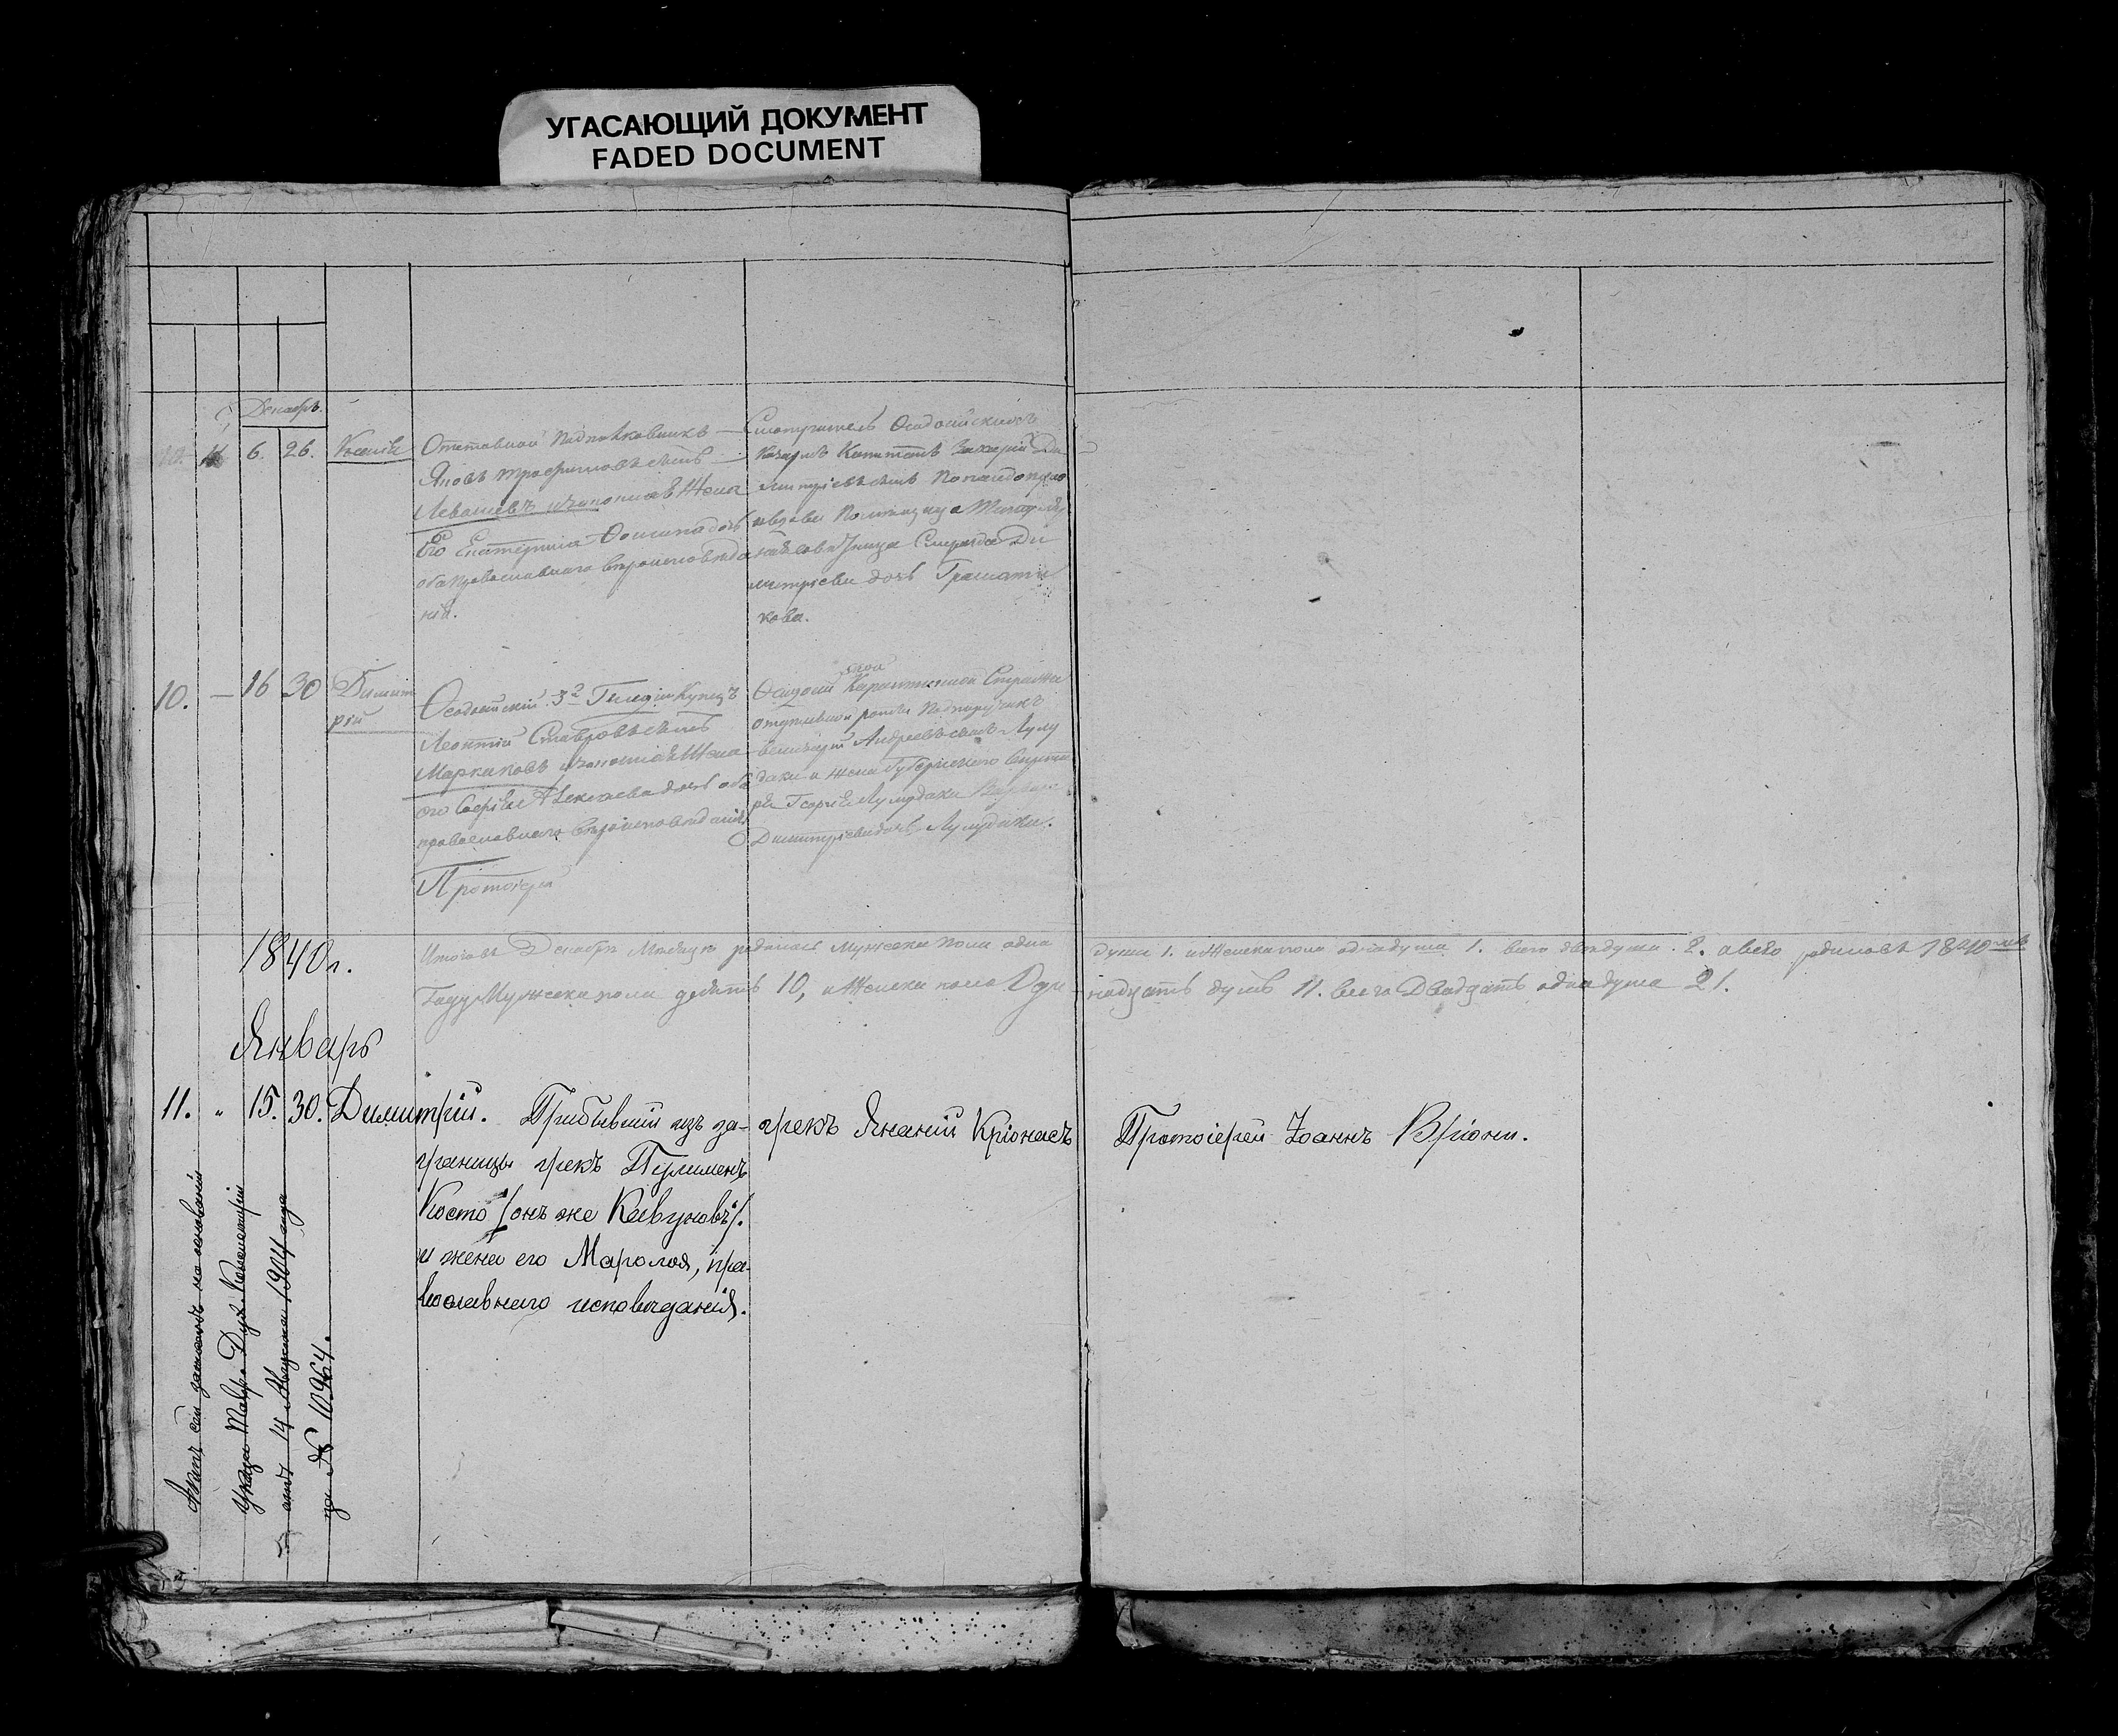 УГАСАЮЩИЙ ДОКУМЕНТ
FADED DOCUMENT
Декабрь.
11 6. 26. Ксенія
Отставной подполковникъ
Яковъ Трофимовъ сынъ
Левашевъ изаконная Жена
Его Екатерина Фомина дочь
оба православнаго вероисповеда
нія.
Смотритель Ѳеодосійскихъ
Казармъ Капитанъ Захарій Ди
митріевъ сынъ Попандопуло
ивдова
Димитріева дочь Грамати
кова.
10. — 16 30 Димит
рій
Ѳеодосійский 3й Гилдіи Купецъ
Леонтій Ставровъ сынъ
Маркиковъ изаконная Жена
его Софія Алексеева дочь оба
православнаго вероисповеданія
Ѳеодосій Карантинной Стражи
отдельной роты Подпоручикъ
Андреевъ сынъ Лулу
даки и жена Губернского Секрета
ря Георгія Лулудаки
Димитріева дочь Лулудаки.
Протоіерей
Итого въ Декабре Месяце родилось Мужска пола одна
душа 1. иЖенска пола однадуша 1. всего дведуши. 2. авсего родилось 1840мъ
Году Мужска пола десять 10, иЖенска пола Оди
надцать душъ 11. всего Двадцать однадуша 21.
1840г.
Январь
11. " 15. 30. Димитрій.
Прибывшій изъ за-
границы грекъ Пулименъ
Косто /онъ же Кавуновъ/.
и жена его Маролоя, пра-
вославнаго исповѣданія.
грекъ Ананій Кріонасъ
Протоіерей Іоаннъ Вріони.
Актъ сей записанъ на основаніи
Указа Тавр. Дух. Консисторіи
отъ 14 Августа 1904 года
за № 10964.